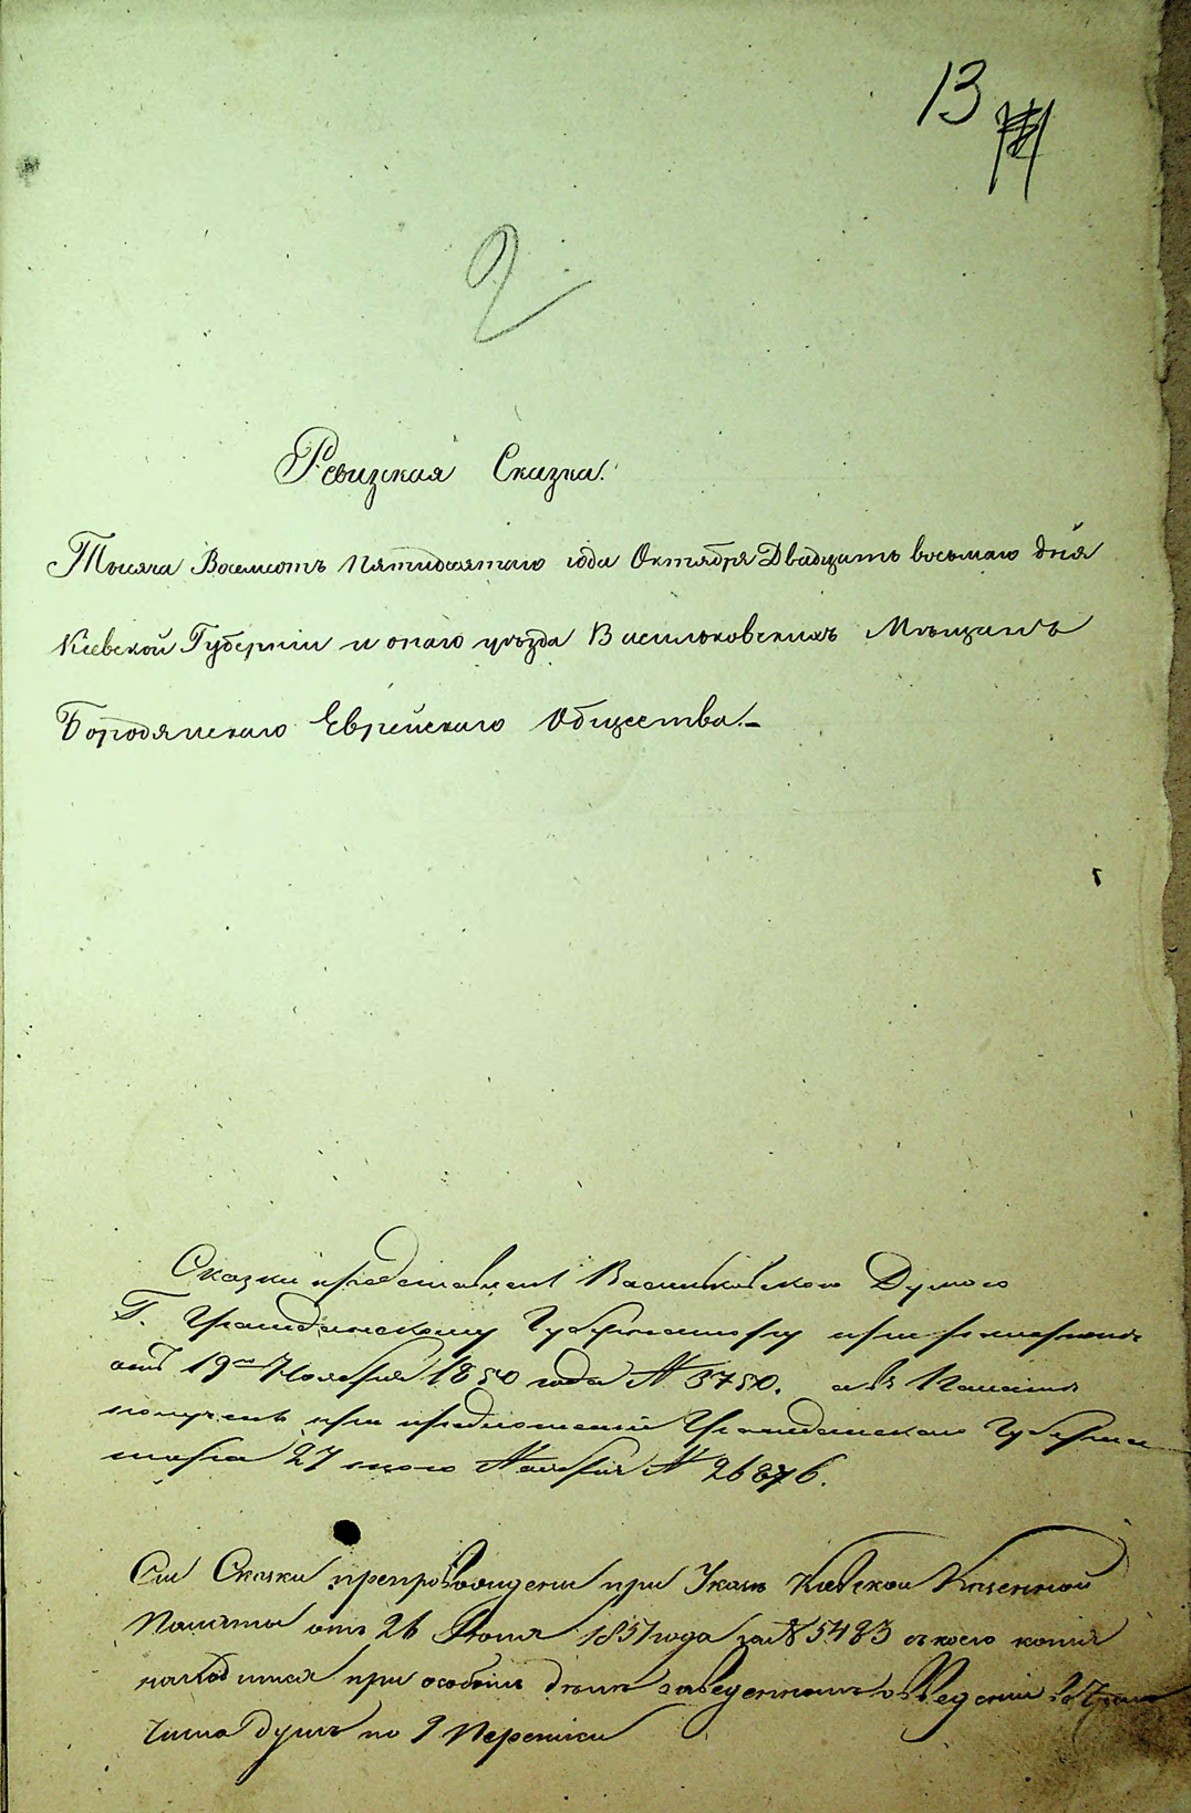 13
2
Ревизская Сказка.
Тысяча Восемсотъ Пятидесятаго года Октября Двадцать восьмаго дня
Кіевской Губерніи и онаго уѣзда Васильковскихъ Мѣщанъ
Бородянскаго Еврейскаго Общества.
Сказки представлены Васильковскою Думою
Г. Гражданскому Губернатору при рапортѣ
отъ 19го Ноября 1850 года № 3750. а въ Палатѣ
получены при предложеніи Гражданскаго Губерна
тора 27 того Ноября № 26876.
Сіи Сказки препровождены при Указѣ Кіевской Казенной
Палаты отъ 26 1851 года за № 5483 съ коего копія
находится при особомъ дѣлѣ заведенномъ о
числа душъ по 9 Переписи